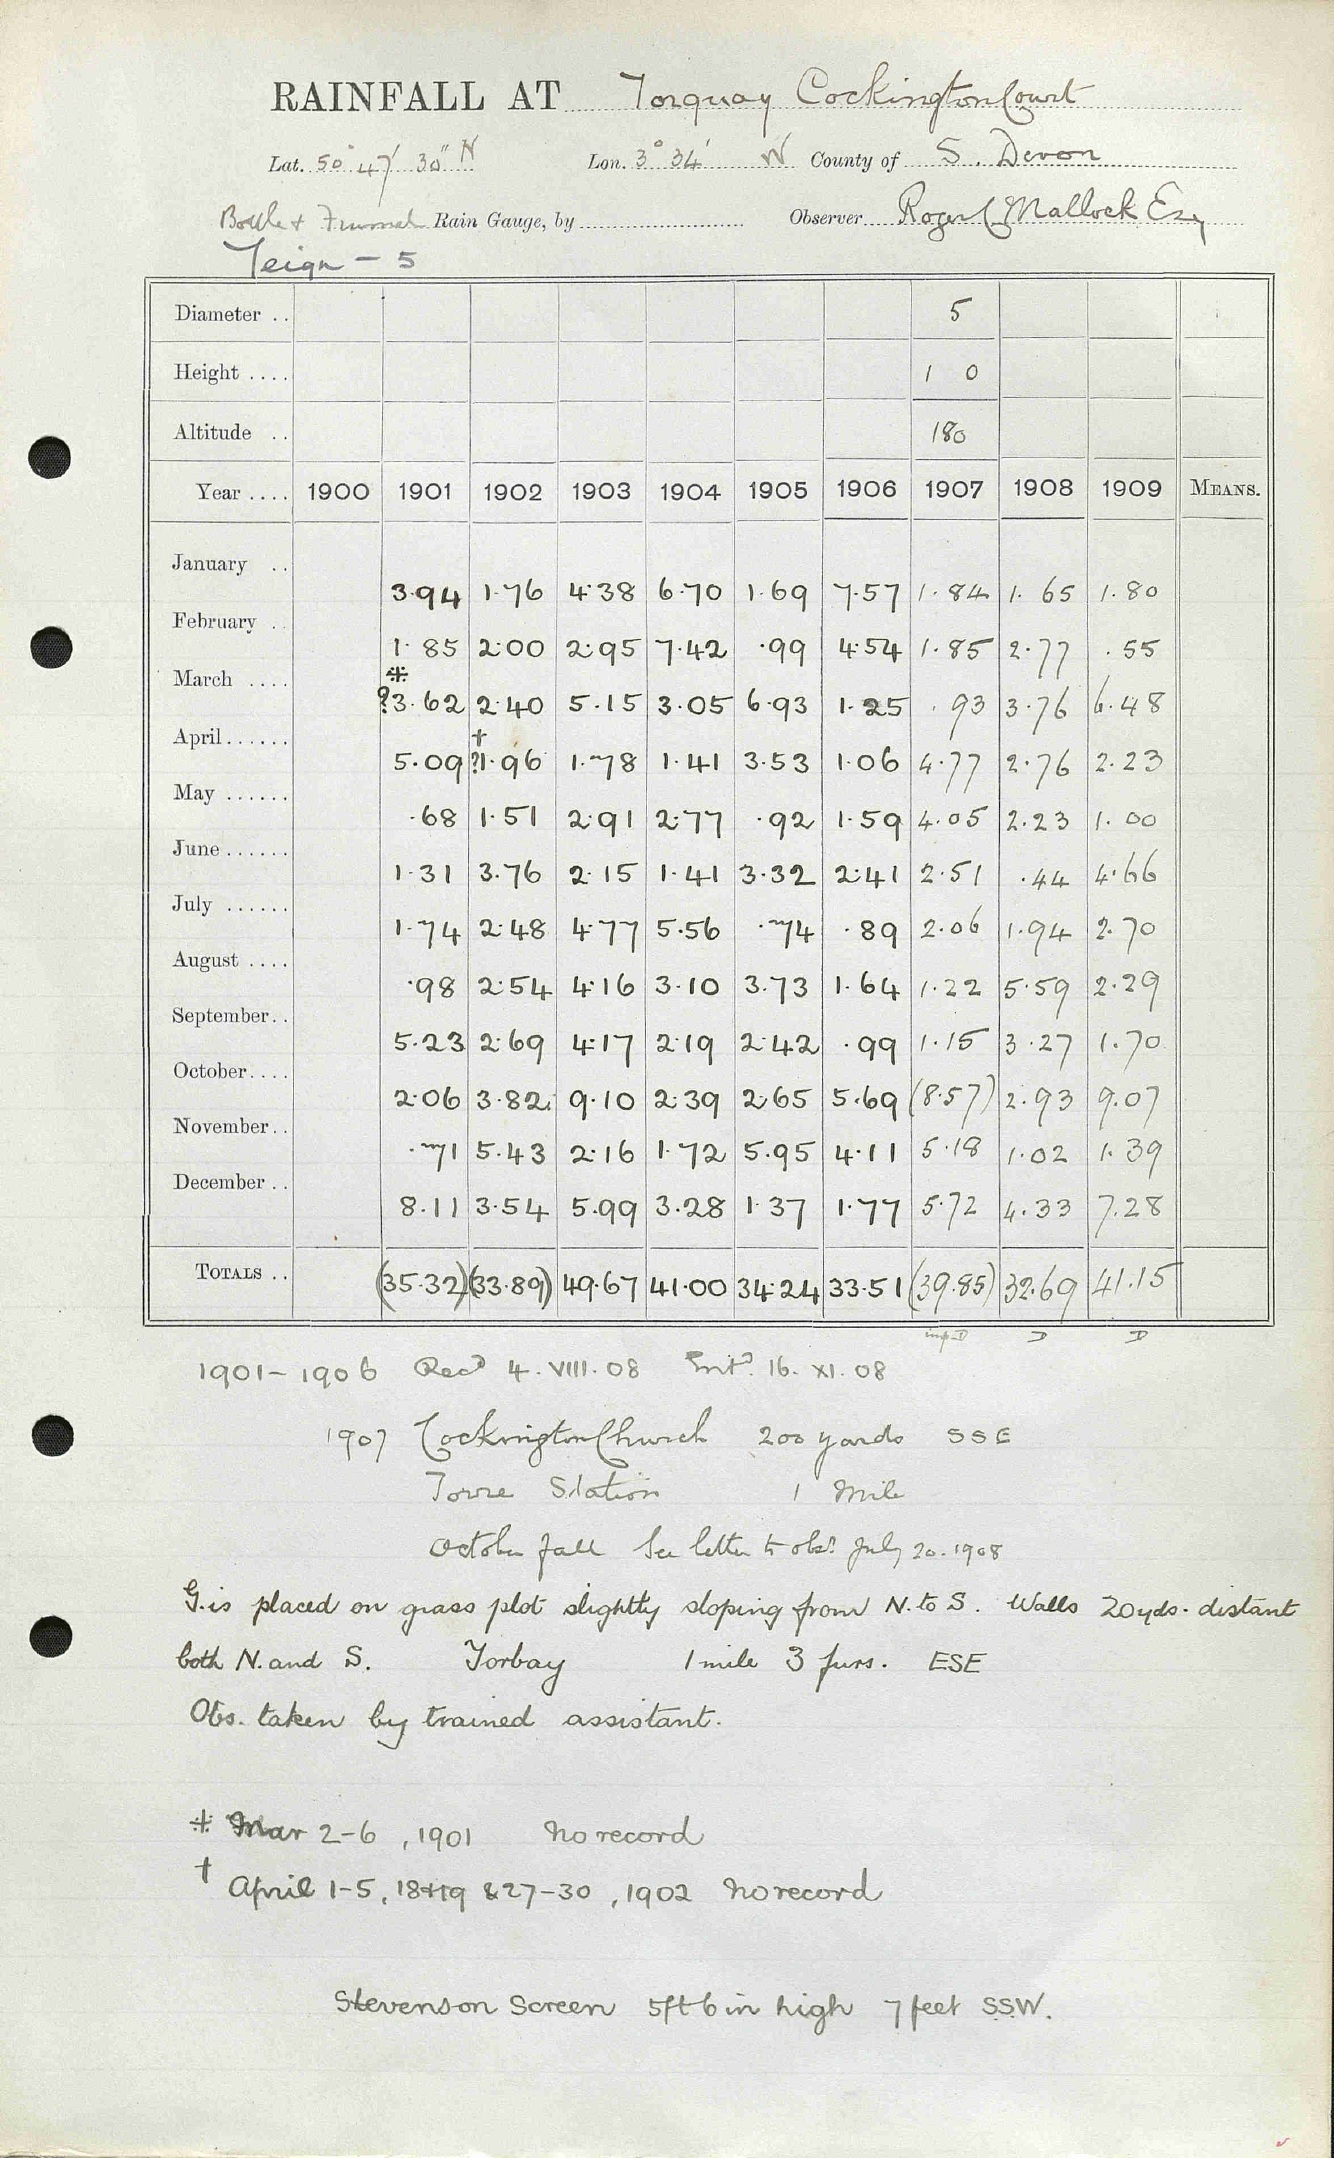 RAINFALL AT Torquay Cockington Court
Lat. 50° 47' 30" N Lon. 3° 34' W County of S. Devon
Bottle & Funnel Rain Gauge, by Observer Roger Mallock Esq
Teign - 5
Diameter .. 5
Height .... 1 0
Altitude .. 180
Year .... 1900 1901 1902 1903 1904 1905 1906 1907 1908 1909 MEANS.
January .. 3.94 1.76 4.38 6.70 1.69 7.57 1.84 1.65 1.80
February . 1.85 2.00 2.95 7.42 .99 4.54 1.85 2.77 .55
March .... ⁜ ?3.62 2.40 5.15 3.05 6.93 1.25 .93 3.76 6.48
April...... 5.09 † ?1.96 1.78 1.41 3.53 1.06 4.77 2.76 2.23
May ...... .68 1.51 2.91 2.77 .92 1.59 4.05 2.23 1.00
June...... 1.31 3.76 2.15 1.41 3.32 2.41 2.51 .44 4.66
July ...... 1.74 2.48 4.77 5.56 .74 .89 2.06 1.94 2.70
August .... .98 2.54 4.16 3.10 3.73 1.64 1.22 5.59 2.29
September.. 5.23 2.69 4.17 2.19 2.42 .99 1.15 3.27 1.70
October.... 2.06 3.82 9.10 2.39 2.65 5.69 (8.57) 2.93 9.07
November.. .71 5.43 2.16 1.72 5.95 4.11 5.18 1.02 1.39
December .. 8.11 3.54 5.99 3.28 1.37 1.77 5.72 4.33 7.28
TOTALS .. (35.32) (33.89) 49.67 41.00 34.24 33.51 (39.85) 32.69 41.15
D D
1901-1906 Recd 4.VIII.08 Entd. 16.XI.08
1907 Cockington Church 200 yards SSE
Torre Station 1 Mile
October fall See letter to obsr July 20.1908
G. is placed on grass plot slightly sloping from N. to S. Walls 20 yds. distant
both N. and S. Torbay 1 mile 3 furs. ESE
Obs. taken by trained assistant.
⁜ Mar 2-6, 1901 No record
† April 1-5, 18+19 & 27-30, 1902 No record
Stevenson Screen 5ft 6in high 7 feet SSW.